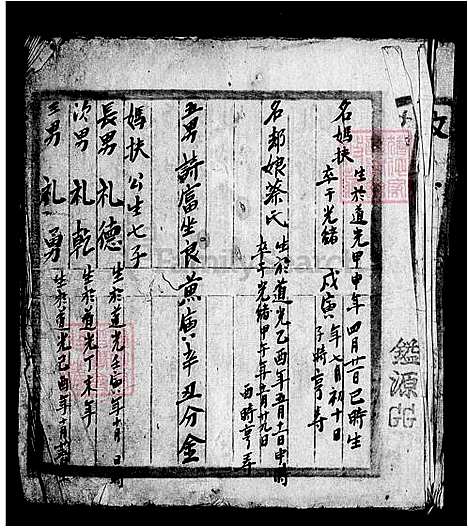 名媽扶
生於道光甲申年四月廿一日巳時生
卒于光緒戊寅年七月初十日子時享寿
名却娘蔡氏
生於道光乙酉年五月十一日申時
卒于光緒甲子年五月廿九日酉時享寿
五男詩富坐艮兼寅辛丑分金
媽扶公生七子
長男礼德
生於道光壬寅年十月 日時
次男礼乾
生於道光丁未年
三男礼勇
生於道光己酉年十月
鑑源
FamilySearch